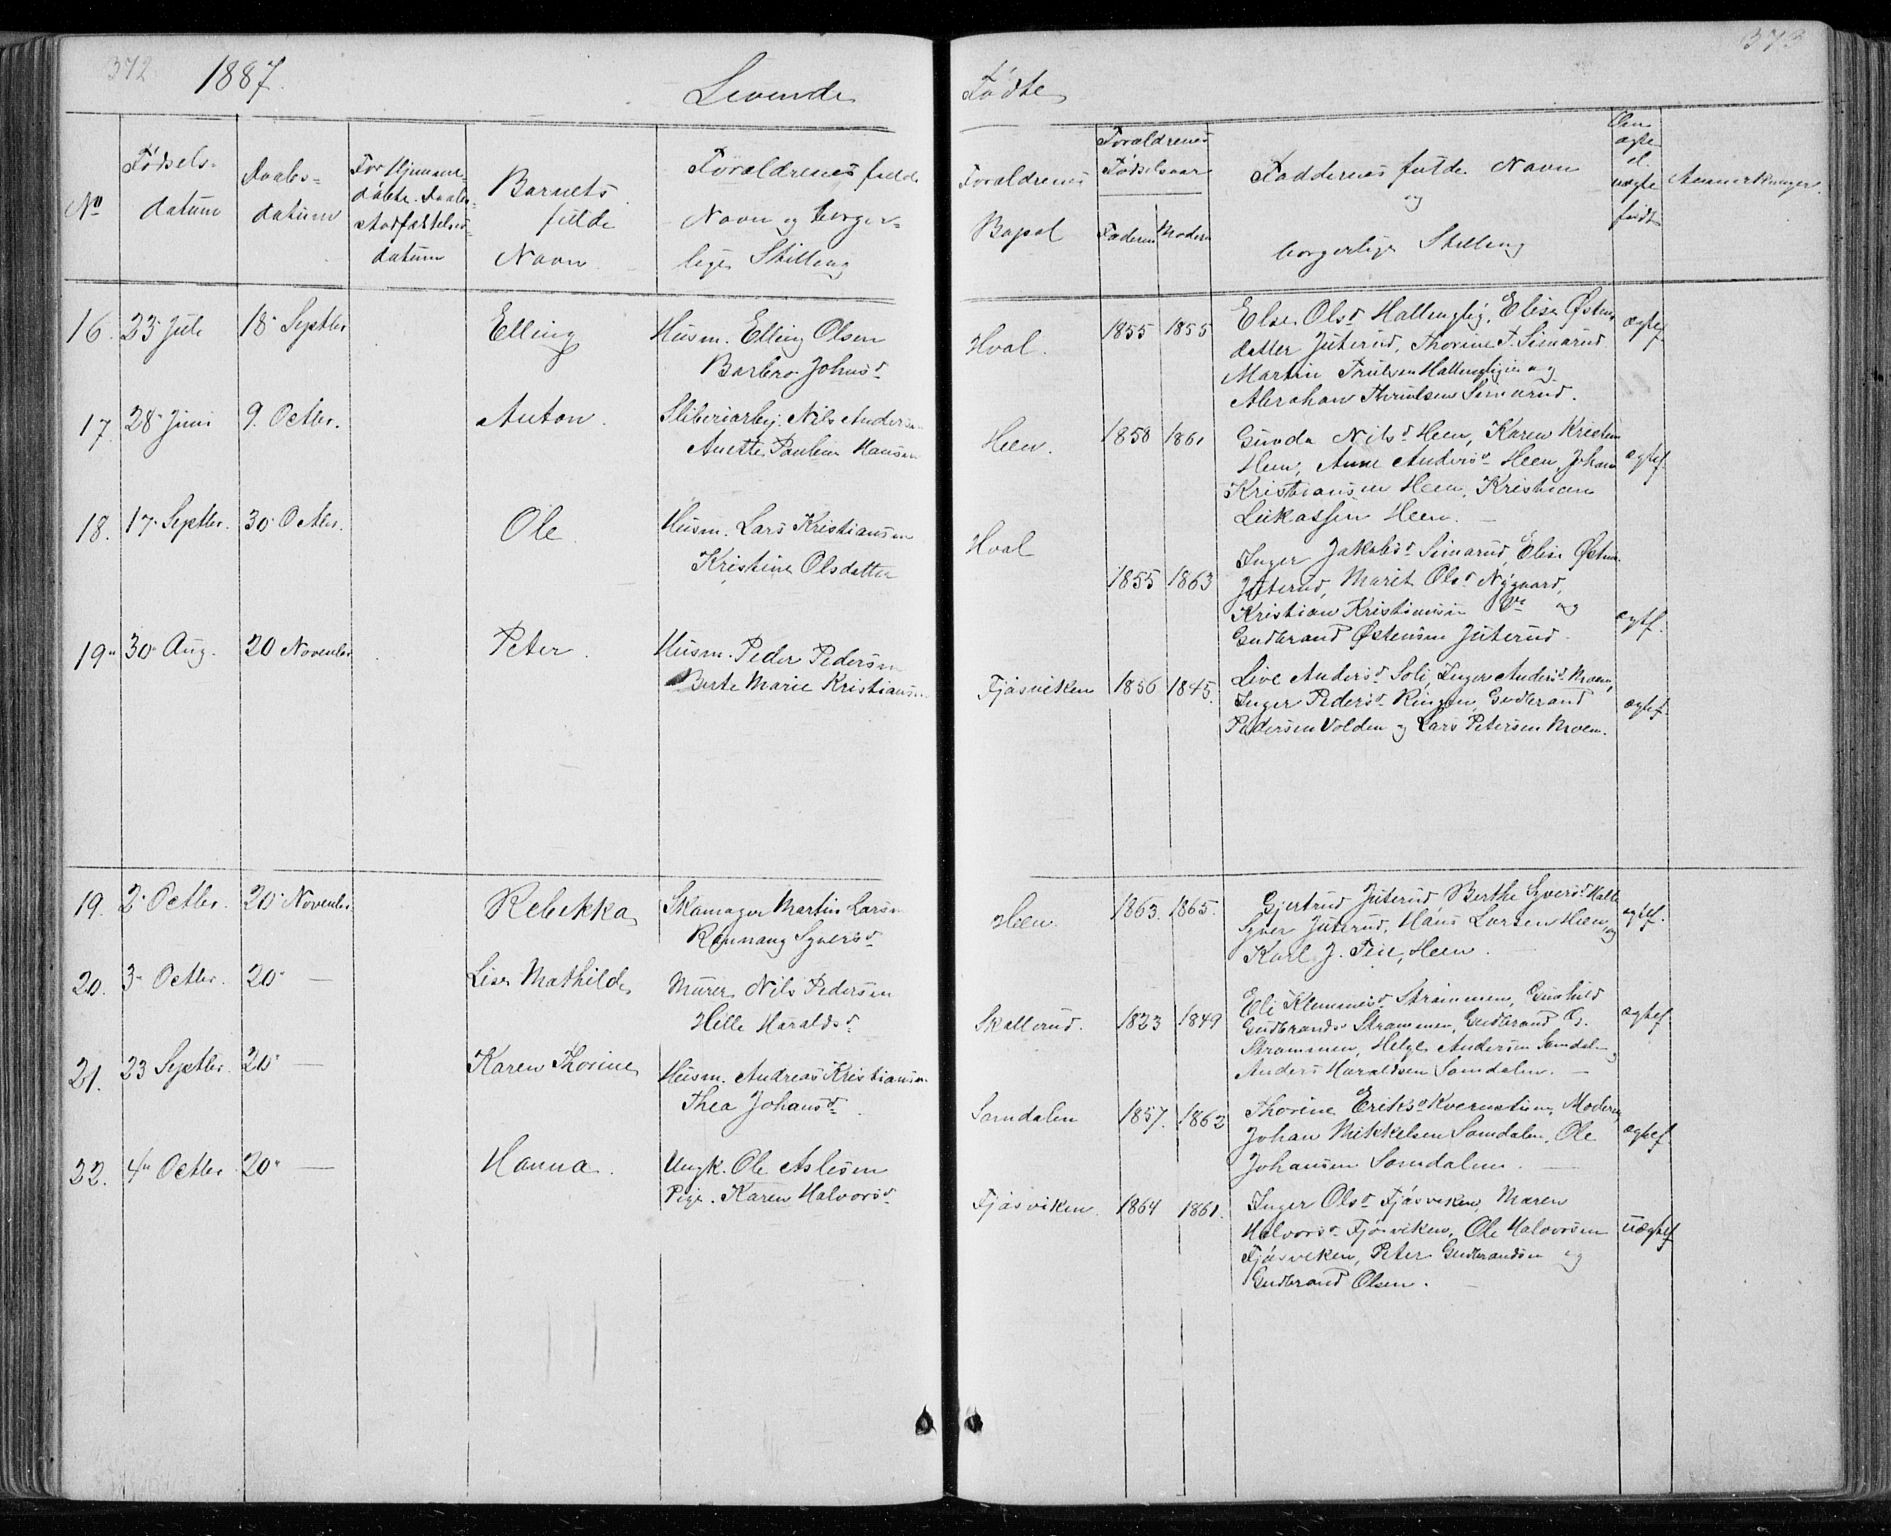 372
1887.
Levende
Fødte
373
No
Fødsels-
datum
Daabs-
datum
For Hjemme-
døbte. Daabs-
stadfæstelses-
datum
Barnets
fulde
Navn
Forældrenes fulde
Navn og borger-
lige Stilling
Forældrenes
Bopæl
Forældrenes
Fødselsaar
Faderen Moderen
Faddernes fulde Navn
og
borgerlige Stilling
Om
ægte
el.
uægte
født
Anmærkninger.
16. 23 Juli 18 Septbr Elling Husm. Elling Olsen
Barbro Johnsd.
Hval. 1855 1855 Else Olsd Hallingby, Elise Østens
datter Juterud, Thorine T. Simarud
Martin Trulsen Hallingbyeie og
Abraham Thrulsen Simarud.
ægtef
17. 28 Juni 9. Octbr. Anton. Sliberiarbej. Nils Andersen
Anette Pauline Hansen
Heen. 1858 1861 Gunda Nilsd Heen, Karen Kristin
Heen, Anne Andersd Heen, Johan
Kristiansen Heen, Kristian
Lukassen Heen. —
ægtef
18. 17 Septbr. 30 Octbr. Ole. Husm. Lars Kristiansen
Kristine Olsdatter
Hval 1855 1863 Inger Jakobsd Simarud, Elise Østens
Juterud, Marit Olsd Nygaard,
Kristian Kristiansen og
Gudbrand Østensen Juterud.
ægtf.
19. 30 Aug. 20 Novembr Peter. Husm. Peder Pedersen
Berte Marie Kristiansen
Fjøsviken 1856 1845. Live Andersd Soli, Inger Andersd. Moen,
Inger Pedersd. Ringen, Gudbrand
Pedersen Volden og Lars Petersen Moen.
ægtef
19. 2 Octbr. 20 Novembr Rebekka Skomager Martin Larsen
Rønnaug Syversd
Heen. 1863. 1865. Gjertrud Juterud, Berthe Syversd
Syver Juterud, Hans Larsen Heen, og
Karl J. Heen.
ægtef.
20. 3 Octbr. 20 — Lise Mathilde Murer Nils Pedersen
Hille Haraldsd
Skallerud. 1823 1849 Eli Klemmesd Strømmen, Gunhild
Gudbrandsd Strømmen, Gudbrand G.
Strømmen, Helge Andersen Somdalen og
Anders Haraldsen Somdalen. —
ægtef
21. 23 Septbr. 20 — Karen Thorine Husm. Andreas Kristiansen
Thea Johansd
Somdalen 1857. 1862 Thorine Eriksd Kvernstuen, Moderen
Johan Mikkelsen Somdalen, Ole
Johansen Somdalen. —
ægtef
22. 4 Octbr 20 — Hanna. Ungk. Ole Aslesen
Pige. Karen Halvorsd
Fjøsviken. 1864 1861. Inger Olsd Fjøsviken, Maren
Halvorsd Fjøsviken, Ole Halvorsen
Fjøsviken, Peter Gudbrandsen og
Gudbrand Olsen. —
uægtef